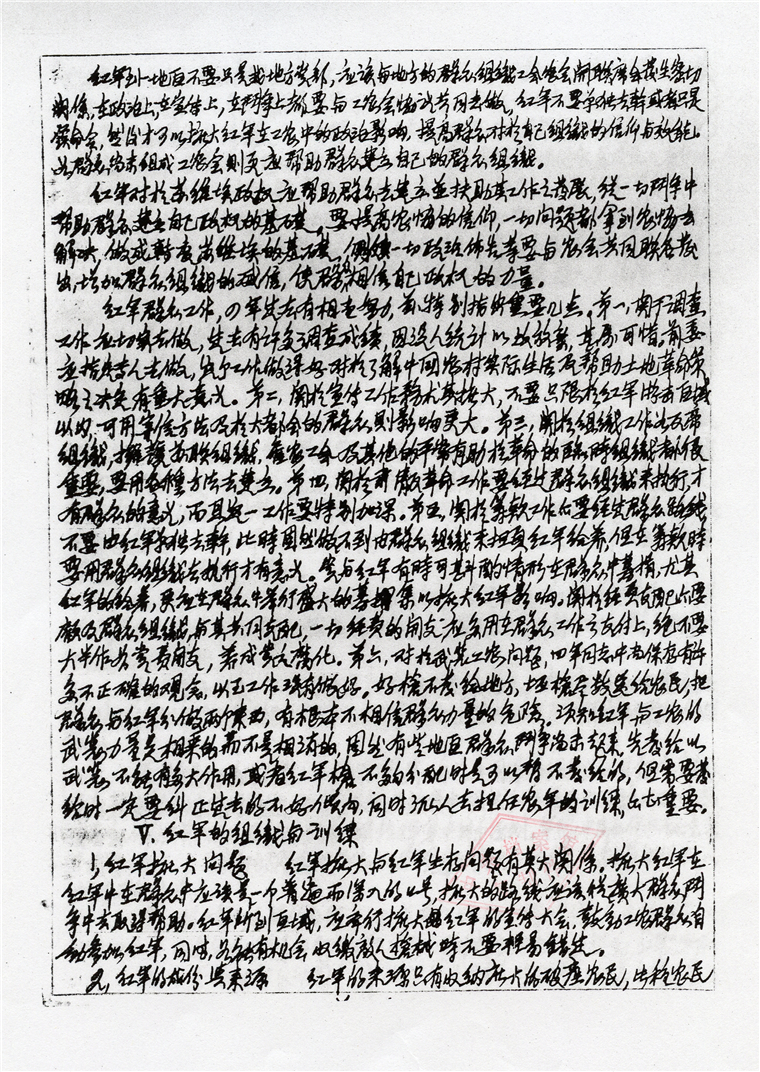 红军到一地区不要只是找地方党部，应该与地方的群众组织工会农会开联席会发生密切
关系，在政治上，在宣传上，在斗争上都要与工农会协议共同去做，红军不要单独去干或者只是
发命令，然后才可以扩大红军在工农中的政治影响，提高群众对于自己组织的信仰与效能。
如群众尚未组成工农会则更应帮助群众建立自己的群众组织。
红军对于苏维埃政权应帮助群众去建立并扶助其工作之发展，从一切斗争中
帮助群众建立自己政权的基础，要提高农协的信仰，一切问题都拿到农协去
解决，做成苏维埃的基础，一切政治布告等要与农会共同联合发
出，增加群众组织的威信，使群众相信自己政权的力量。
红军群众工作，四军过去有相当努力，前特别指出重要几点。第一，关于调查
工作应切实去做，过去有许多调查成绩，因没人统计以致放弃，甚为可惜。前委
应指定专人去做，此工作做得好对于了解中国农村实际生活及帮助土地革命策
略之决定有重大意义。第二，关于宣传工作务求其扩大，不要只限于红军游击区域
以内，可用通信方法及于大都会的群众，则影响更大。第三，关于组织工作如反帝
组织，拥护苏联组织，雇农工会及其他的平常有助于革命的临时组织都很
重要，要用各种方法去建立。第四，关于肃反革命工作要经过群众组织来执行，才
有群众的意义，而且这一工作要特别加深。第五，关于筹款工作亦要经过群众路线，
不要由红军单独去干，此时固然做不到由群众组织来担负红军给养，但在筹款时
要用群众组织去执行才有意义。红军有时可在群众中募捐，尤其
红军的给养，更应在群众中举行盛大的募集以扩大红军影响。关于经费支配亦要
顾及群众组织，与其共同支配，一切经费的开支应多用在群众工作之支付上，绝不要
大半作为费开支，养成贪污腐化。第六，对于武装工农问题，四军同志中尚保存有许
多不正确的观念，以至工作没有做好。好枪不发给地方，坏枪尽数送给农民，把
群众与红军分做两个东西，有根本不相信群众力量的危险。须知红军与工农的
武装力量是相乘的而不是相消的，固然有些地区群众斗争尚未起来，先发给以
武装不能有多大作用，或者红军枪不够分配时是可以暂不发给的，但需要发
给时一定要纠正过去的不好倾向，同时派人去担任农军的训练，亦甚重要。
Ⅴ.红军的组织与训练
1，红军扩大问题　　红军扩大与红军生存问题有莫大关系。扩大红军在
红军中在群众中应该是一个普遍而深入的口号，扩大的路线应该从广大群众斗
争中去取得帮助。红军所到区域，应举行扩大红军的宣传大会，鼓动工农群众自
动参加红军，同时，如有机会收缴敌人枪械时不要轻易错过。
2，红军的成份与来源　　红军的来源只有收纳广大的破产农民，此种农民